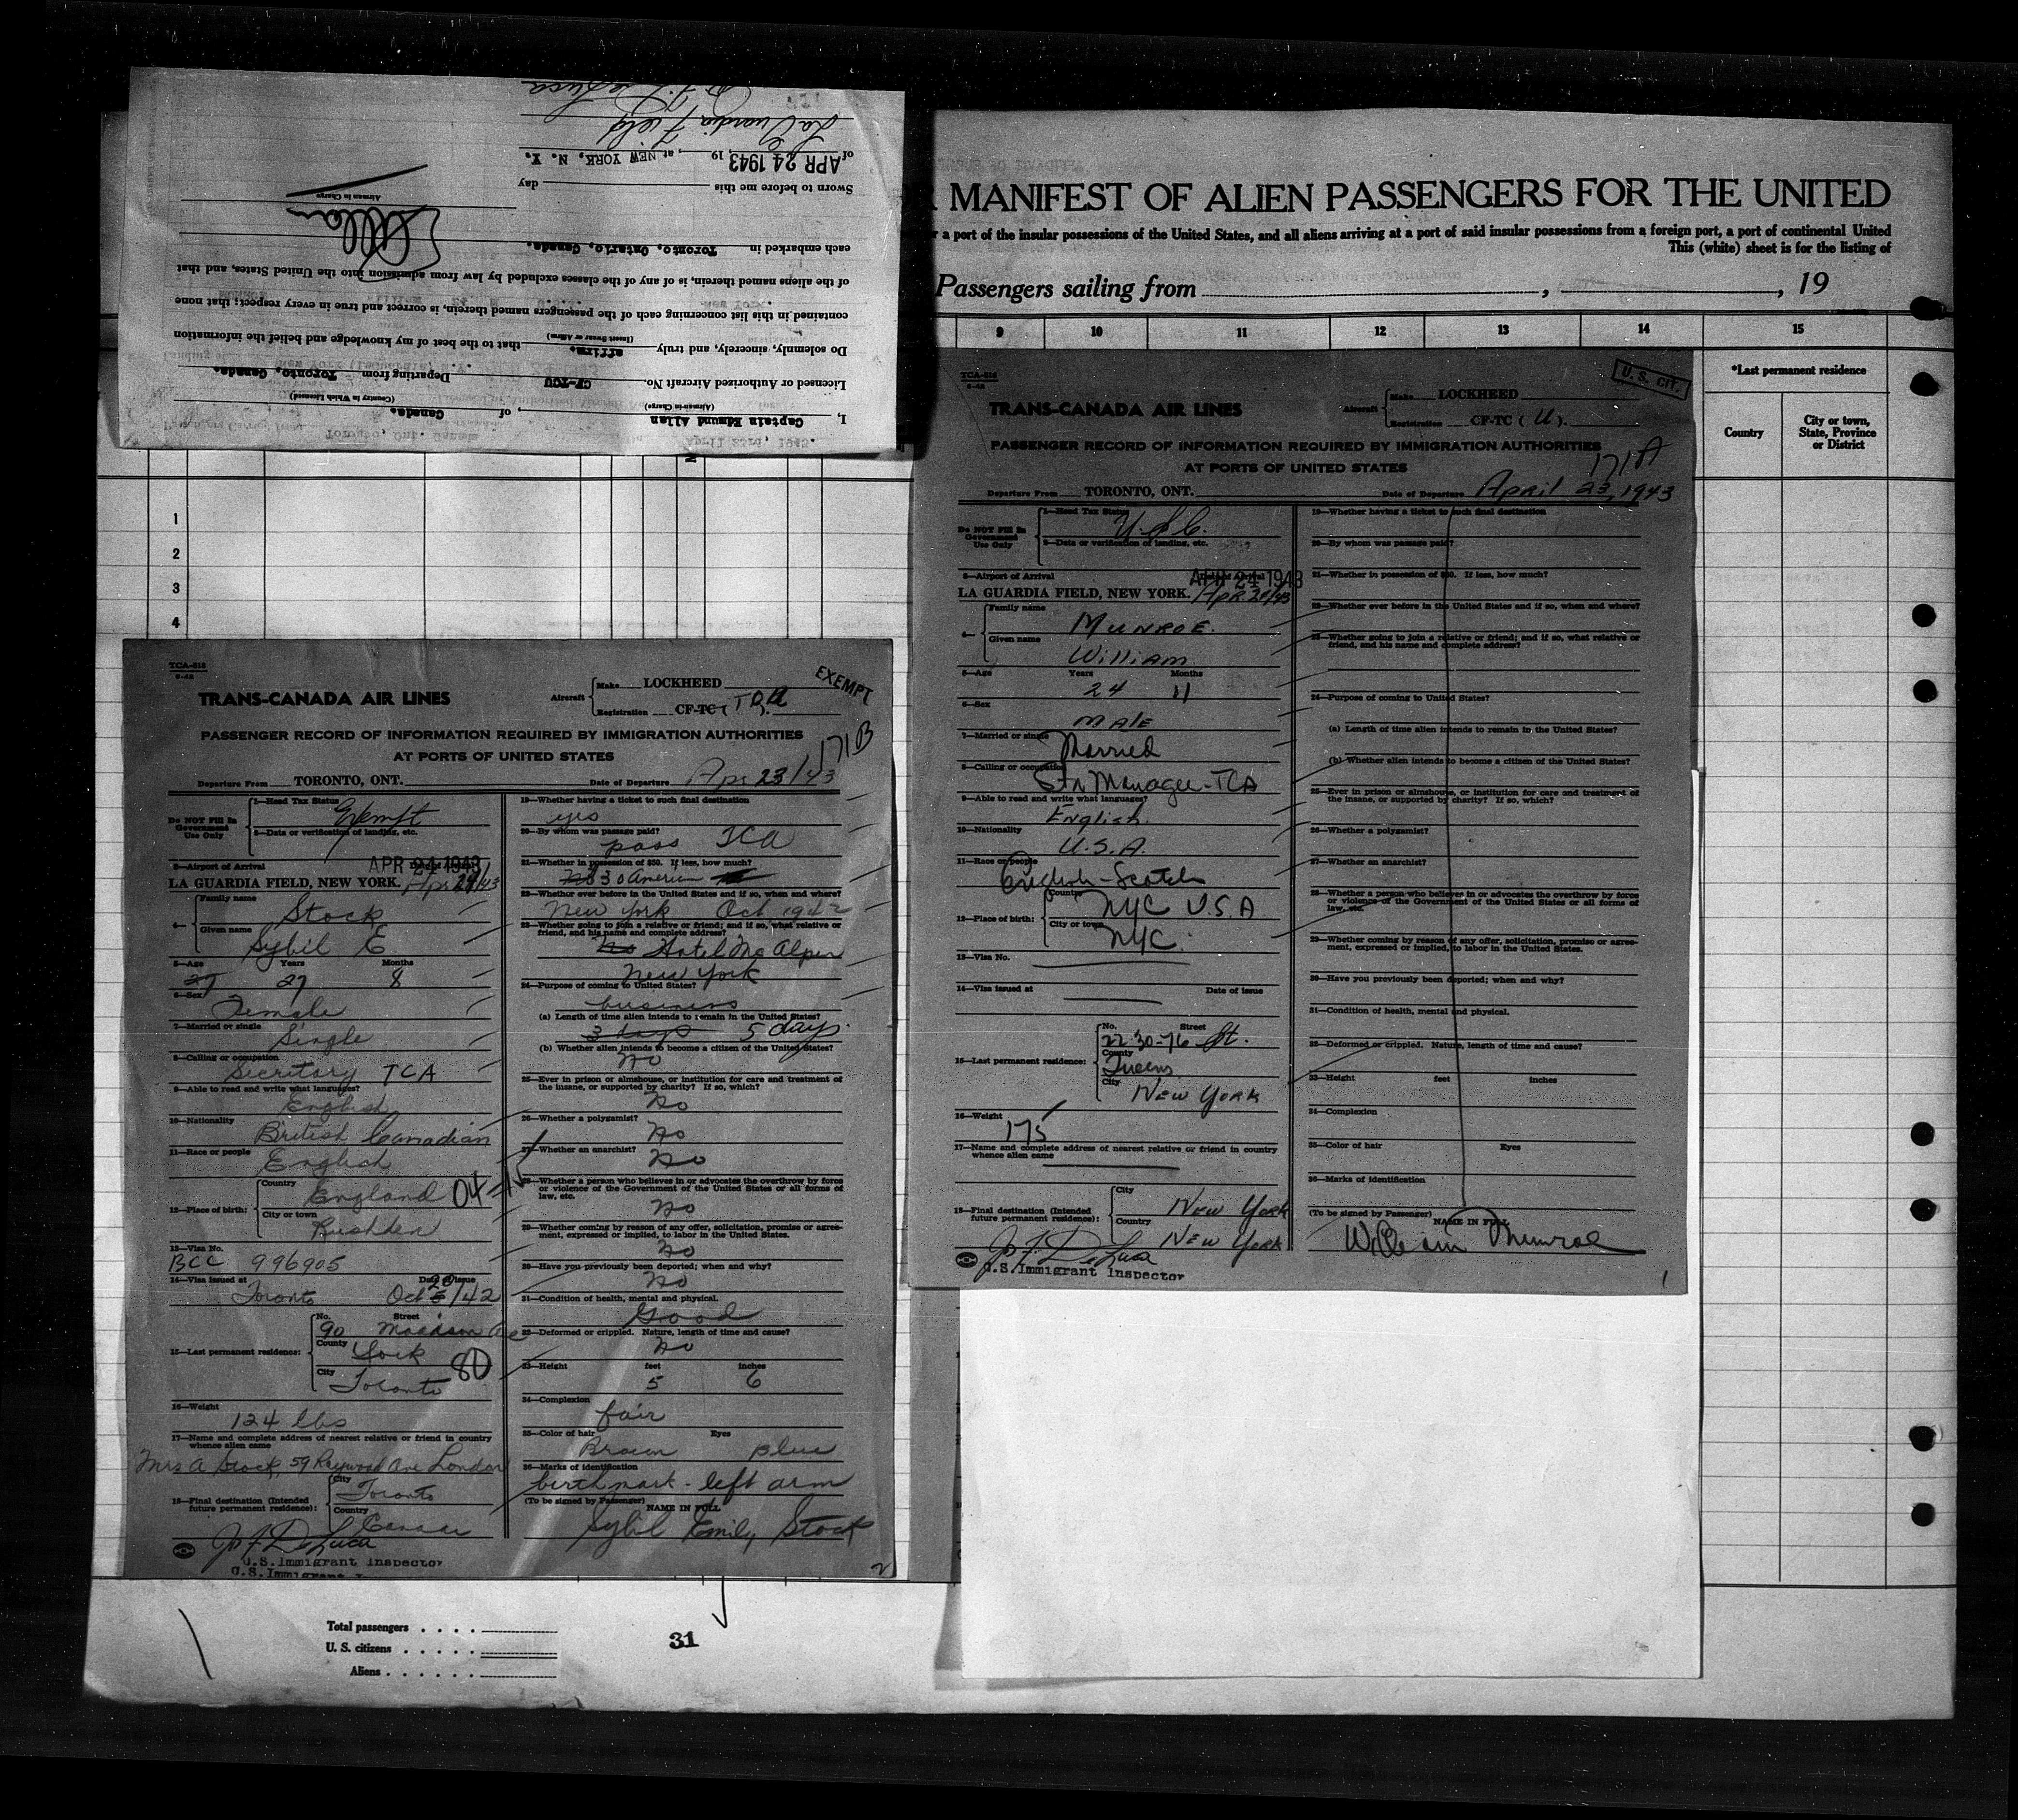 I, Captain Edmund Allan, of Canada.
(Airman-in-Charge) (Country in Which Licensed)
Licensed or Authorized Aircraft No. CF-TCU Departing from Toronto, Canada.
Do solemnly, sincerely, and truly affirm. that to the best of my knowledge and belief the information
(Insert Swear or Affirm)
contained in this list concerning each of the passengers named therein, is correct and true in every respect; that none
of the aliens named therein, is of any of the classes excluded by law from admission into the United States, and that
each embarked in Toronto, Ontario, Canada.
Airman in Charge
Sworn to before me this day
of APR 24 1943, 19 , at NEW YORK, N. Y.
LaGuardia Field
MANIFEST OF ALIEN PASSENGERS FOR THE UNITED
a port of the insular possessions of the United States, and all aliens arriving at a port of said insular possessions from a foreign port, a port of continental United
This (white) sheet is for the listing of
Passengers sailing from , , 19
9 10 11 12 13 14 15
*Last permanent residence
Country
City or town, State, Province or District
1
2
3
4
TCA-518
6-42
EXEMPT
TRANS-CANADA AIR LINES
Aircraft
Make LOCKHEED
Registration CF-TC (
PASSENGER RECORD OF INFORMATION REQUIRED BY IMMIGRATION AUTHORITIES
AT PORTS OF UNITED STATES
171B
Departure From TORONTO, ONT. Date of Departure Apr 23/43
Do NOT Fill In Government Use Only
1—Head Tax Status Exempt
2—Data or verification of landing, etc.
3—Airport of Arrival APR 24 1943
LA GUARDIA FIELD, NEW YORK. Apr 24/43
4— Family name Stock
Given name Sybil E
5—Age Years Months
27 27 8
6—Sex Female
7—Married or single Single
8—Calling or occupation Secretary TCA
9—Able to read and write what languages? English
10—Nationality British Canadian
11—Race or people English
12—Place of birth: Country England 04
City or town Rushden
13—Visa No. BCC 996905
14—Visa issued at Date of issue
Toronto Oct 20/42
15—Last permanent residence: No. Street
90 Madison Ave
County York
City Toronto 80
16—Weight 124 lbs
17—Name and complete address of nearest relative or friend in country whence alien came
Mrs A Stock, 59 Raywood Ave London
18—Final destination (Intended future permanent residence): City Toronto
Country Canada
Jos F. DeLuca
U.S. Immigrant Inspector
U.S. Immigrant I
19—Whether having a ticket to such final destination
yes
20—By whom was passage paid?
pass TCA
21—Whether in possession of $50. If less, how much?
No 30 American
22—Whether ever before in the United States and if so, when and where?
New York Oct. 1942
23—Whether going to join a relative or friend; and if so, what relative or friend, and his name and complete address?
No Hotel McAlpin
New York
24—Purpose of coming to United States?
business
(a) Length of time alien intends to remain in the United States?
3 days 5 days.
(b) Whether alien intends to become a citizen of the United States?
No
25—Ever in prison or almshouse, or institution for care and treatment of the insane, or supported by charity? If so, which?
No
26—Whether a polygamist?
No
27—Whether an anarchist?
No
28—Whether a person who believes in or advocates the overthrow by force or violence of the Government of the United States or all forms of law, etc.
No
29—Whether coming by reason of any offer, solicitation, promise or agreement, expressed or implied, to labor in the United States.
No
30—Have you previously been deported; when and why?
No
31—Condition of health, mental and physical.
Good
32—Deformed or crippled. Nature, length of time and cause?
No
33—Height feet inches
5 6
34—Complexion
fair
35—Color of hair Eyes
Brown Blue
36—Marks of identification
birthmark - left arm
(To be signed by Passenger) NAME IN FULL
Sybil Emily Stock
2
TCA-518
6-42
U. S. CIT.
TRANS-CANADA AIR LINES
Aircraft
Make LOCKHEED
Registration CF-TC ( U ).
PASSENGER RECORD OF INFORMATION REQUIRED BY IMMIGRATION AUTHORITIES
AT PORTS OF UNITED STATES
171A
Departure From TORONTO, ONT. Date of Departure April 23, 1943
Do NOT Fill In Government Use Only
1—Head Tax Status U.S.C.
2—Data or verification of landing, etc.
3—Airport of Arrival APR 24 1943
LA GUARDIA FIELD, NEW YORK. Apr 24/43
4— Family name MUNROE.
Given name William
5—Age Years Months
24 11
6—Sex Male
7—Married or single Married
8—Calling or occupation Stn Manager-TCA
9—Able to read and write what languages? English.
10—Nationality U.S.A.
11—Race or people English-Scotch
12—Place of birth: Country NYC U.S.A
City or town NYC.
13—Visa No.
14—Visa issued at Date of issue
15—Last permanent residence: No. Street
22-30-76 St.
County Queens
City New York
16—Weight 175
17—Name and complete address of nearest relative or friend in country whence alien came
18—Final destination (Intended future permanent residence): City New York
Country New York
Jos F. DeLuca
U.S. Immigrant Inspector
19—Whether having a ticket to such final destination
20—By whom was passage paid?
21—Whether in possession of $50. If less, how much?
22—Whether ever before in the United States and if so, when and where?
23—Whether going to join a relative or friend; and if so, what relative or friend, and his name and complete address?
24—Purpose of coming to United States?
(a) Length of time alien intends to remain in the United States?
(b) Whether alien intends to become a citizen of the United States?
25—Ever in prison or almshouse, or institution for care and treatment of the insane, or supported by charity? If so, which?
26—Whether a polygamist?
27—Whether an anarchist?
28—Whether a person who believes in or advocates the overthrow by force or violence of the Government of the United States or all forms of law, etc.
29—Whether coming by reason of any offer, solicitation, promise or agreement, expressed or implied, to labor in the United States.
30—Have you previously been deported; when and why?
31—Condition of health, mental and physical.
32—Deformed or crippled. Nature, length of time and cause?
33—Height feet inches
34—Complexion
35—Color of hair Eyes
36—Marks of identification
(To be signed by Passenger) NAME IN FULL
William Munroe
1
Total passengers
U. S. citizens
Aliens
31